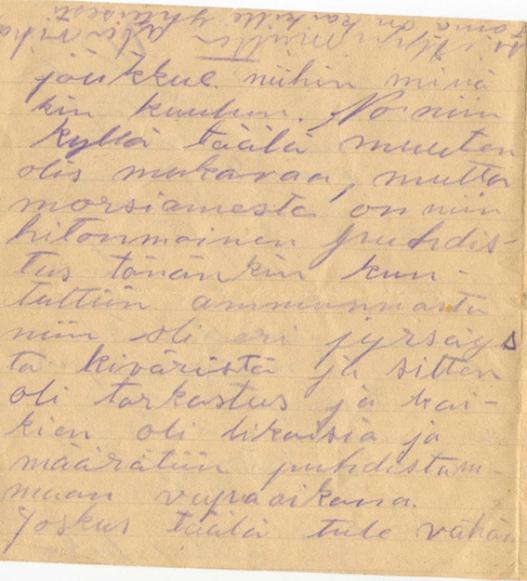 joukkue niihin minä
kin kuulun. No niin
kyllä täälä muuten
olis mukavaa, mutta
morsiamesta on niin
hitonmoinen puhdis-
tus tänänkin kun
tultiin ammunnasta
niin oli eri jyrsäys
tä kivääristä ja sitten
oli tarkastus ja kai-
kien oli likaisia ja
määrätiin puhdistam-
maan vapaaikana.
Joskus täälä tule vähän